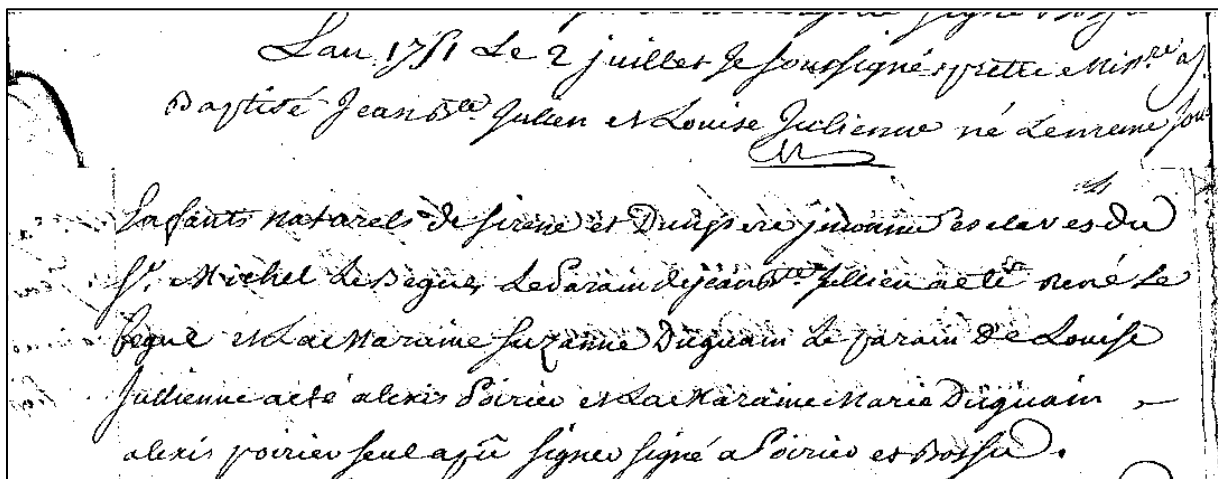 Lan 1751 Le 2 juillet Je soussigné prètre Miss.re a
Baptisé Jean B.te Julien et Louise Julienne né Lememe jour
Enfants naturels de sirene et D'un pere jnconnu esclaves du
S.r Michel LeBegue, Le Parain de jean B.te Jullien a eté René Le
begue et La Maraine Suzanne Duguain Le parain De Louise
Jullienne a eté alexis Poirier et La Maraine Marie Duguain
alexis poirier seul a sçû signer signé a Poirier et Bossu.